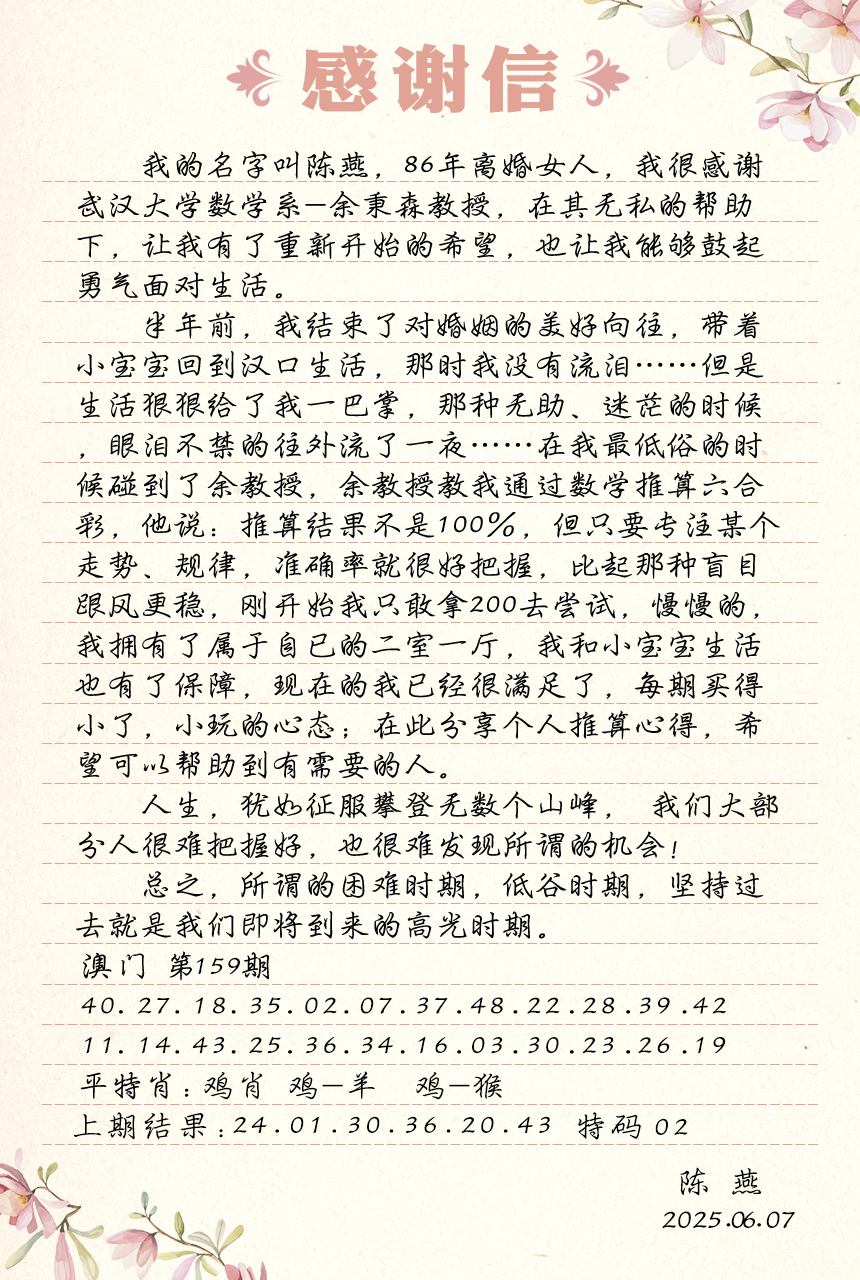 感谢信
我的名字叫陈燕，86年离婚女人，我很感谢
武汉大学数学系—余秉森教授，在其无私的帮助
下，让我有了重新开始的希望，也让我能够鼓起
勇气面对生活。
半年前，我结束了对婚姻的美好向往，带着
小宝宝回到汉口生活，那时我没有流泪……但是
生活狠狠给了我一巴掌，那种无助、迷茫的时候
，眼泪不禁的往外流了一夜……在我最低俗的时
候碰到了余教授，余教授教我通过数学推算六合
彩，他说：推算结果不是100%，但只要专注某个
走势、规律，准确率就很好把握，比起那种盲目
跟风更稳，刚开始我只敢拿200去尝试，慢慢的，
我拥有了属于自已的二室一厅，我和小宝宝生活
也有了保障，现在的我已经很满足了，每期买得
小了，小玩的心态；在此分享个人推算心得，希
望可以帮助到有需要的人。
人生，犹如征服攀登无数个山峰， 我们大部
分人很难把握好，也很难发现所谓的机会！
总之，所谓的困难时期，低谷时期，坚持过
去就是我们即将到来的高光时期。
澳门 第159期
40.27.18.35.02.07.37.48.22.28.39.42
11.14.43.25.36.34.16.03.30.23.26.19
平特肖：鸡肖 鸡—羊 鸡—猴
上期结果：24.01.30.36.20.43 特码 02
陈 燕
2025.06.07